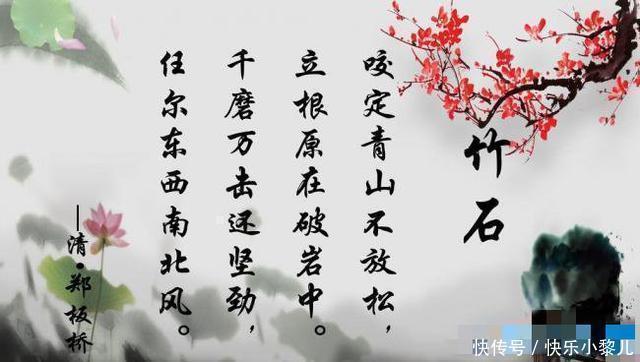 竹石
咬定青山不放松，
立根原在破岩中。
千磨万击还坚劲，
任尔东西南北风。
—清·郑板桥
快传号 / 快乐小黎儿